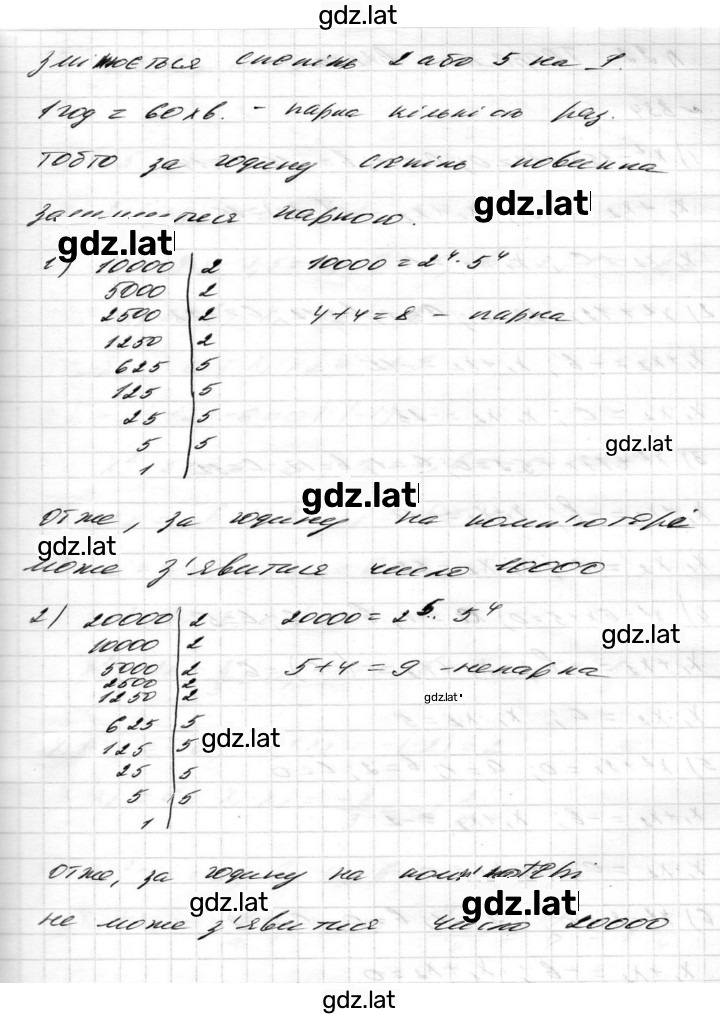 gdz.lat
змінюється степінь 2 або 5 на 1.
1 год = 60 хв. - парна кількість раз.
тобто за годину степінь повинна
залишиться парною.
gdz.lat
gdz.lat
1) 10000 | 2 10000 = 2⁴ · 5⁴
5000 | 2
2500 | 2 4+4=8 - парна
1250 | 2
625 | 5
125 | 5
25 | 5
5 | 5
1
gdz.lat
gdz.lat
отже, за годину на комп'ютері
gdz.lat
може з'явитися число 10000
2) 20000 | 2 20000 = 2⁵ · 5⁴
10000 | 2
gdz.lat
5000 | 2 5+4 = 9 - непарна
2500 | 2
1250 | 2
gdz.lat
625 | 5
gdz.lat
125 | 5
25 | 5
5 | 5
1
отже, за годину на
gdz.lat
gdz.lat
не може з'явитися число 20000
gdz.lat